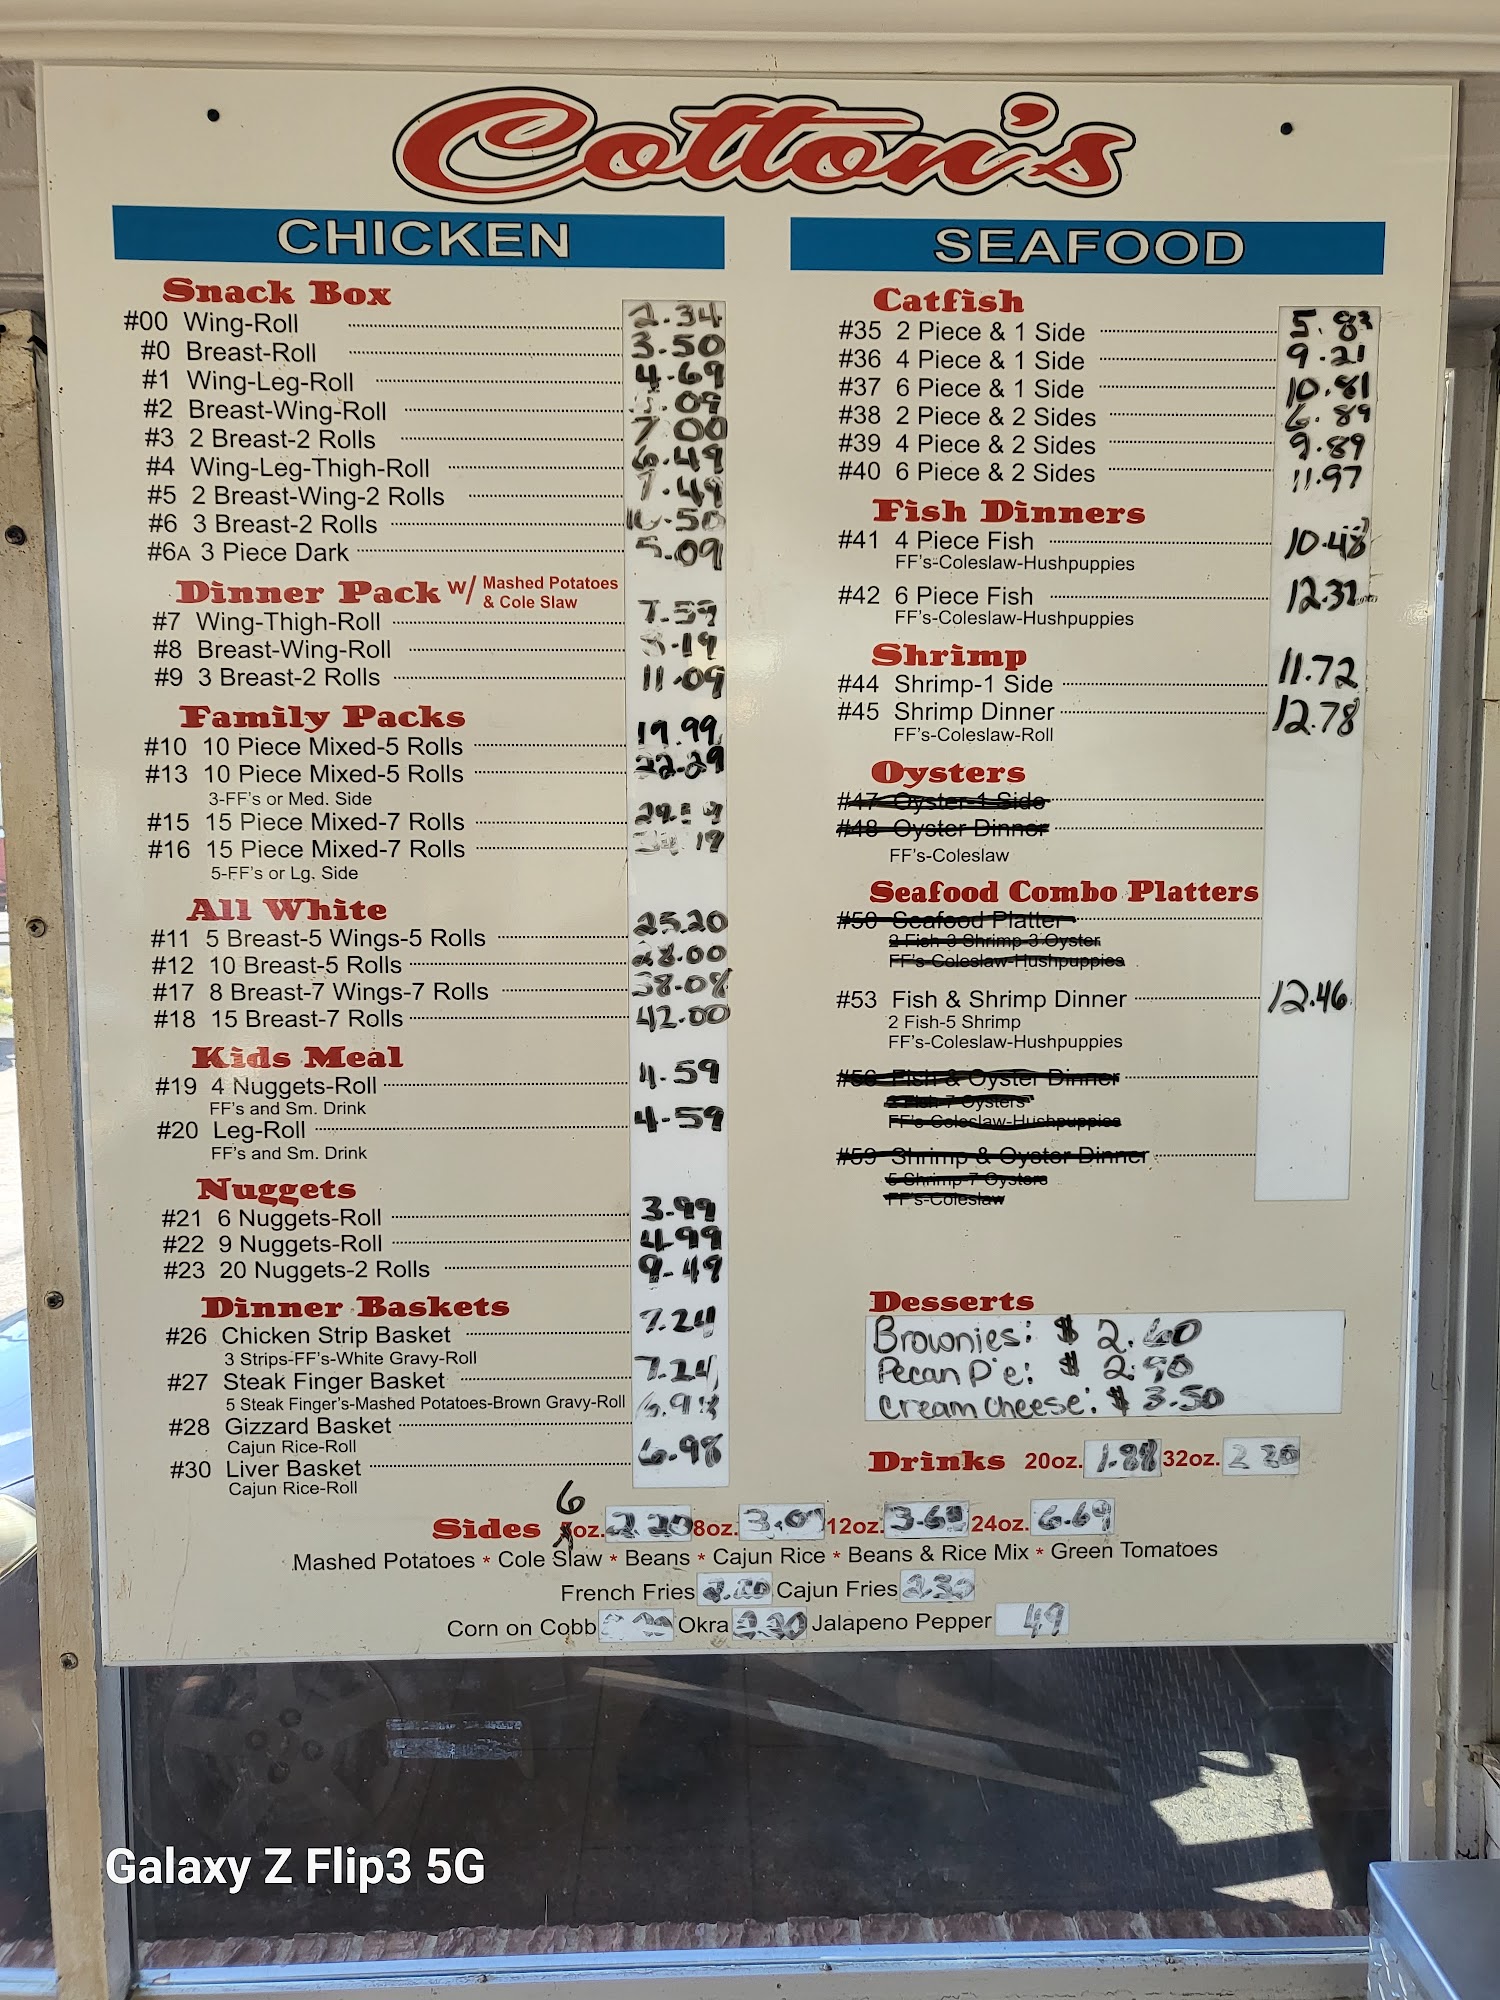 Cotton's
CHICKEN
Snack Box
#00 Wing-Roll 2.34
#0 Breast-Roll 3.50
#1 Wing-Leg-Roll 4.69
#2 Breast-Wing-Roll 5.09
#3 2 Breast-2 Rolls 7.00
#4 Wing-Leg-Thigh-Roll 6.49
#5 2 Breast-Wing-2 Rolls 7.49
#6 3 Breast-2 Rolls 10.50
#6A 3 Piece Dark 5.09
Dinner Pack w/ Mashed Potatoes & Cole Slaw
#7 Wing-Thigh-Roll 7.59
#8 Breast-Wing-Roll 8.19
#9 3 Breast-2 Rolls 11.09
Family Packs
#10 10 Piece Mixed-5 Rolls 19.99
#13 10 Piece Mixed-5 Rolls 22.29
3-FF's or Med. Side
#15 15 Piece Mixed-7 Rolls
#16 15 Piece Mixed-7 Rolls
5-FF's or Lg. Side
All White
#11 5 Breast-5 Wings-5 Rolls 25.20
#12 10 Breast-5 Rolls 28.00
#17 8 Breast-7 Wings-7 Rolls 38.08
#18 15 Breast-7 Rolls 42.00
Kids Meal
#19 4 Nuggets-Roll 4.59
FF's and Sm. Drink
#20 Leg-Roll 4.59
FF's and Sm. Drink
Nuggets
#21 6 Nuggets-Roll 3.99
#22 9 Nuggets-Roll 4.99
#23 20 Nuggets-2 Rolls 9.49
Dinner Baskets
#26 Chicken Strip Basket 7.24
3 Strips-FF's-White Gravy-Roll
#27 Steak Finger Basket 7.24
5 Steak Finger's-Mashed Potatoes-Brown Gravy-Roll
#28 Gizzard Basket 6.98
Cajun Rice-Roll
#30 Liver Basket 6.98
Cajun Rice-Roll
SEAFOOD
Catfish
#35 2 Piece & 1 Side 5.83
#36 4 Piece & 1 Side 9.21
#37 6 Piece & 1 Side 10.81
#38 2 Piece & 2 Sides 6.89
#39 4 Piece & 2 Sides 9.89
#40 6 Piece & 2 Sides 11.97
Fish Dinners
#41 4 Piece Fish 10.48
FF's-Coleslaw-Hushpuppies
#42 6 Piece Fish 12.32
FF's-Coleslaw-Hushpuppies
Shrimp
#44 Shrimp-1 Side 11.72
#45 Shrimp Dinner 12.78
FF's-Coleslaw-Roll
Oysters
#47 Oyster-1 Side
#48 Oyster Dinner
FF's-Coleslaw
Seafood Combo Platters
#50 Seafood Platter
2 Fish-3 Shrimp-3 Oyster
FF's-Coleslaw-Hushpuppies
#53 Fish & Shrimp Dinner 12.46
2 Fish-5 Shrimp
FF's-Coleslaw-Hushpuppies
#56 Fish & Oyster Dinner
2 Fish-7 Oysters
FF's-Coleslaw-Hushpuppies
#59 Shrimp & Oyster Dinner
5 Shrimp-7 Oysters
FF's-Coleslaw
Desserts
Brownies: $ 2.60
Pecan Pie: $ 2.90
Cream Cheese: $ 3.50
Drinks 20oz. 1.88 32oz. 2 20
Sides 6oz. 2.20 8oz. 3.09 12oz. 3.68 24oz. 6.69
Mashed Potatoes * Cole Slaw * Beans * Cajun Rice * Beans & Rice Mix * Green Tomatoes
French Fries Cajun Fries 2.30
Corn on Cobb Okra 2.20 Jalapeno Pepper 49
Galaxy Z Flip3 5G